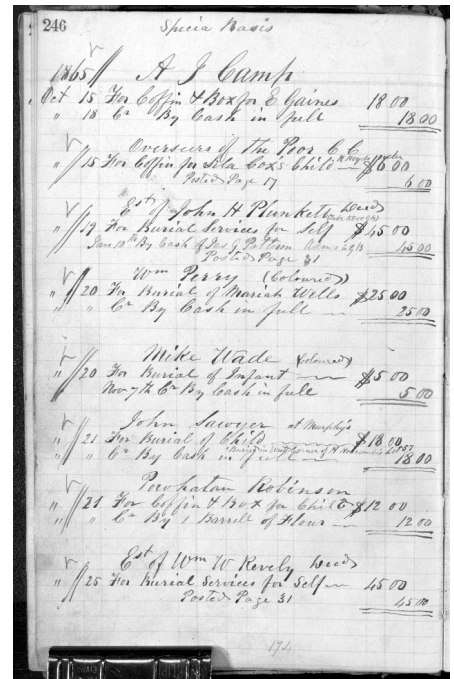 246 Specia Basis
1865 // A J Camp
Oct 15 For Coffin & Box for E Gaines 18 00
" 18 Cr By Cash in full 18.00
Overseers of the Poor C.C.
" // 15 For Coffin for Sila Cox's Child $6 00
Posted Page 17 6 00
Est of John H. Plunkett Decd
" // 19 For Burial Services for Self $45 00
Jany 10th By Cash of Jas G Patterson Adms 45 00
Posted Page 31
Wm Perry (Coloured)
" // 20 For Burial of Mariah Wells $25 00
" // Cr By Cash in full 25 00
Mike Wade (Coloured)
" // 20 For Burial of Infant $5 00
Nov 7th Cr By Cash in full 5 00
John Sawyer at Murphy's
" // 21 For Burial of Child $18 00
Buried in West corner of
" // " Cr By Cash in full 18 00
Powhatan Robinson
" // 21 For Coffin & Box for Child $12 00
" // " Cr By 1 Barrel of Flour 12 00
Est of Wm W Revely Decd
" // 25 For Burial Services for Self 45 00
Posted Page 31 45 00
174